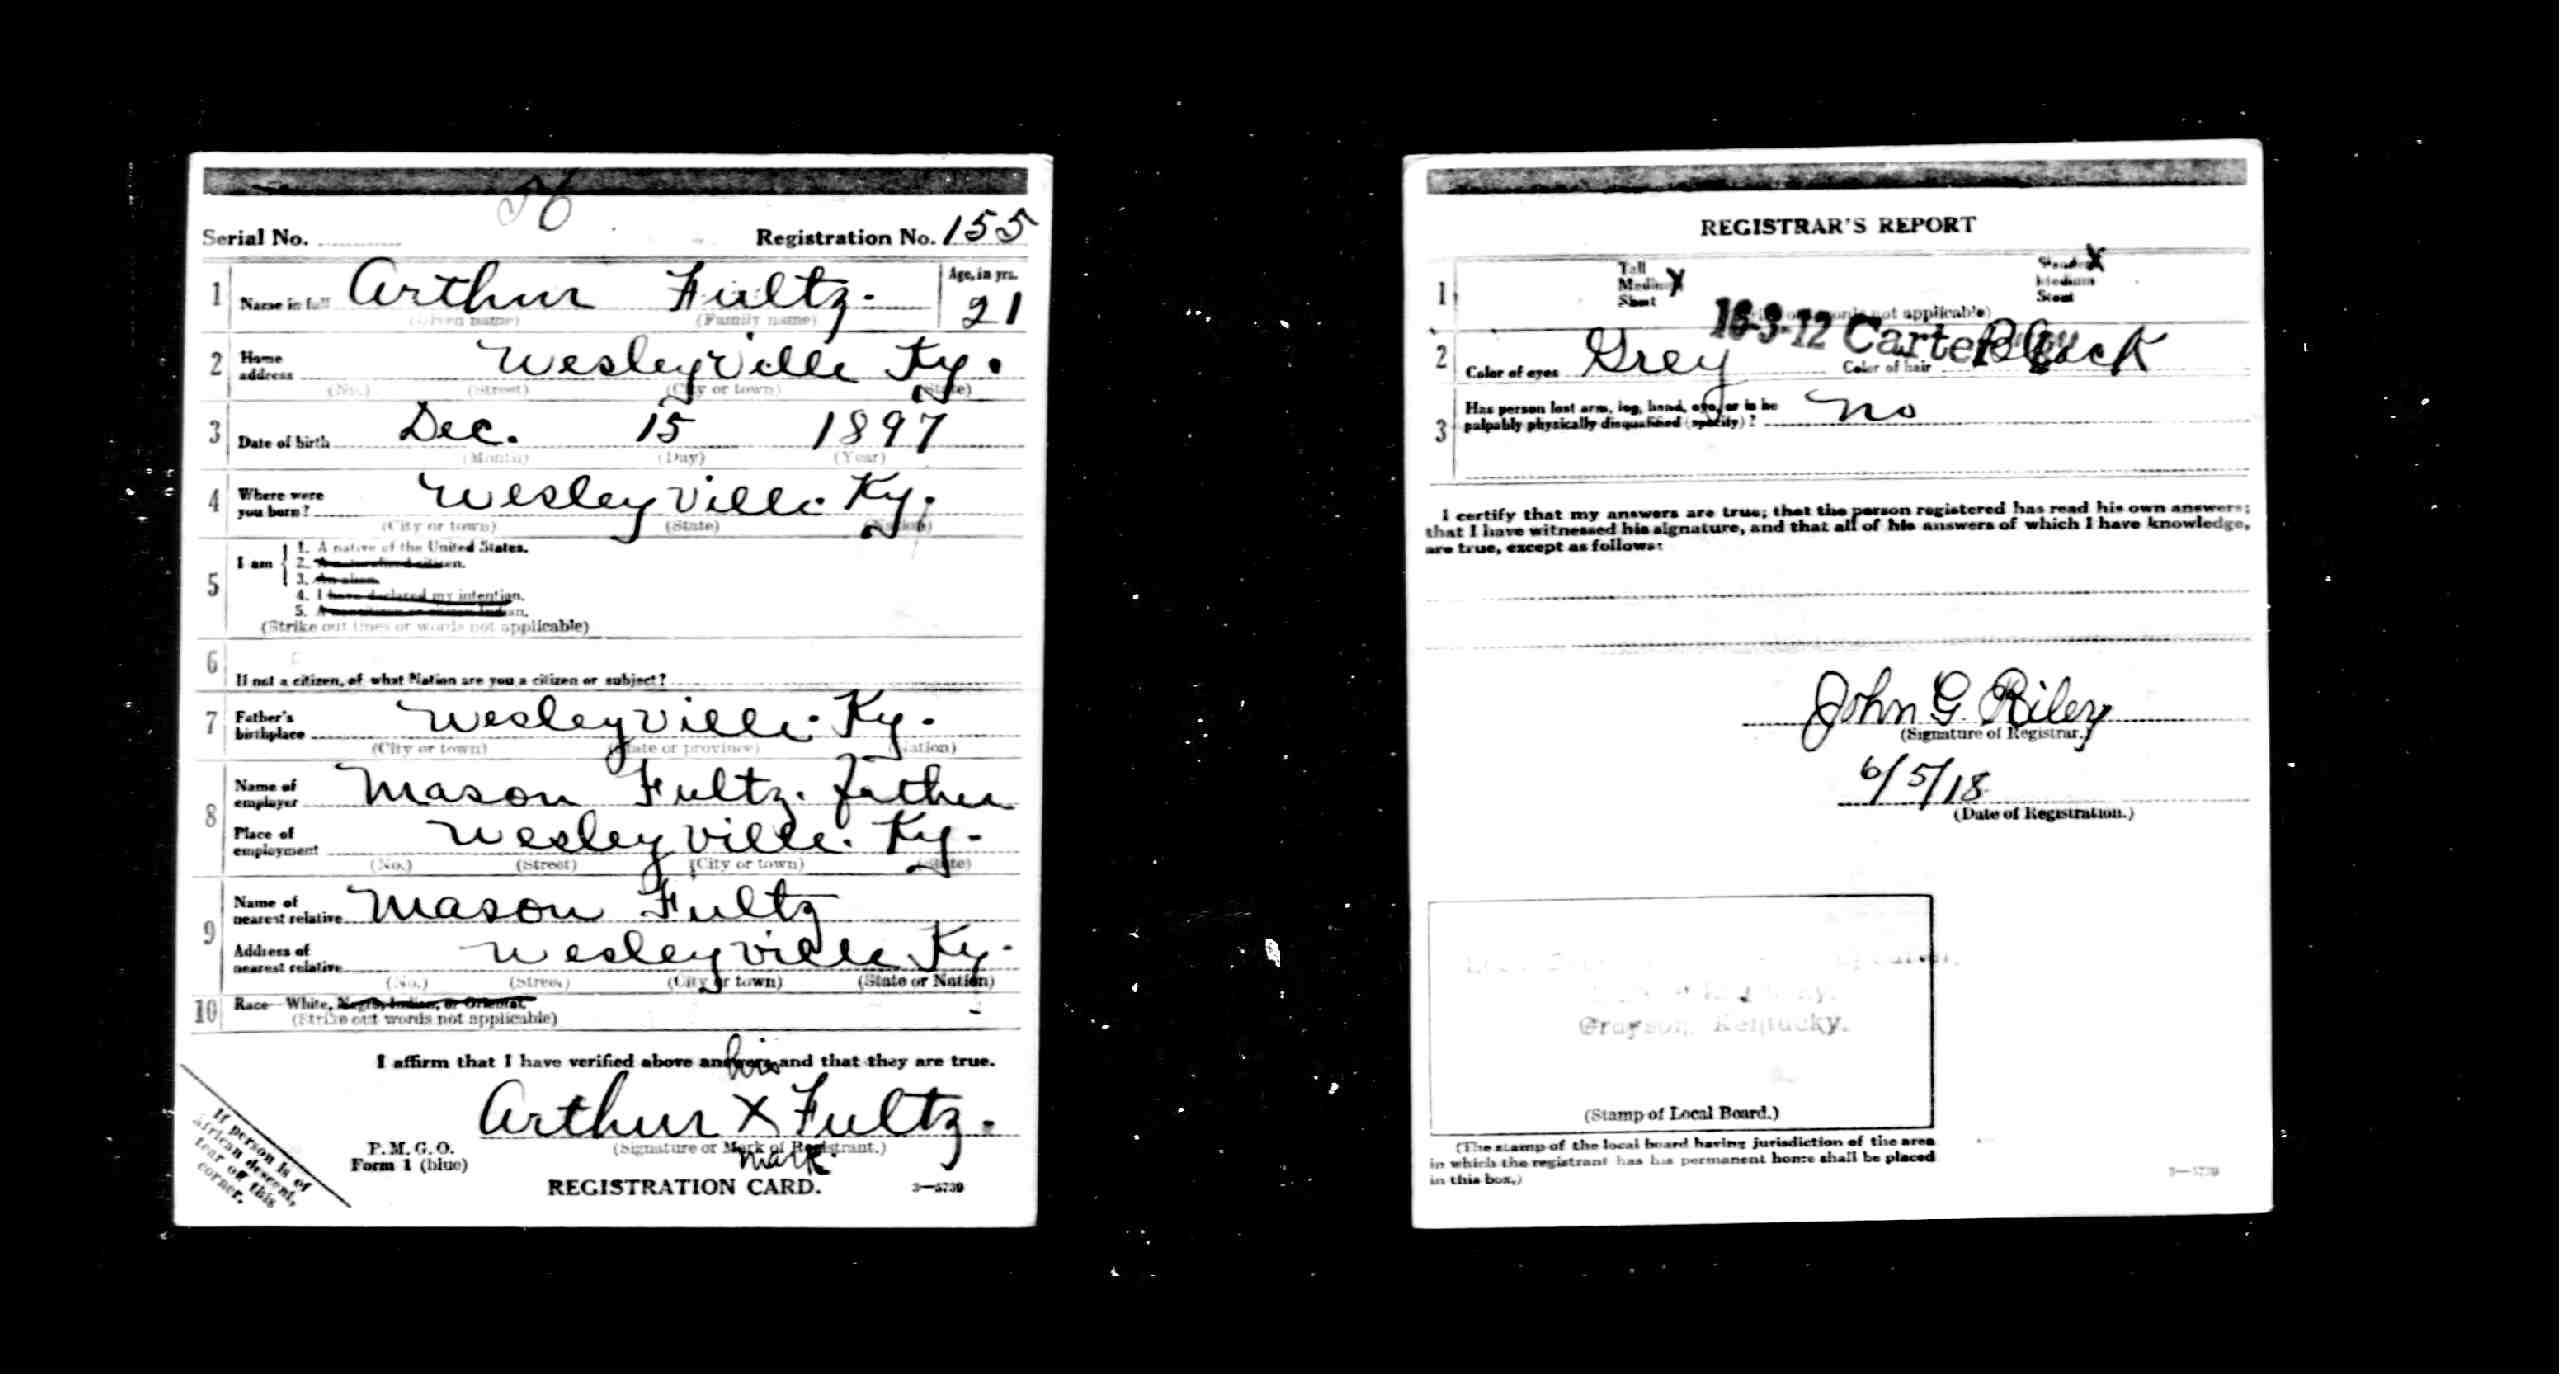 26
Serial No. Registration No. 155
1 Name in full Arthur Fultz. Age, in yrs.
(Given name) (Family name) 21
2 Home address Wesleyville Ky.
(No.) (Street) (City or town) (State)
3 Date of birth Dec. 15 1897
(Month) (Day) (Year)
4 Where were you born? Wesleyville Ky.
(City or town) (State) (Nation)
5 I am
1. A native of the United States.
2. A naturalized citizen.
3. An alien.
4. I have declared my intention.
5. A noncitizen or citizen Indian.
(Strike out lines or words not applicable)
6
If not a citizen, of what Nation are you a citizen or subject?
7 Father's birthplace Wesleyville. Ky.
(City or town) (State or province) (Nation)
8 Name of employer Mason Fultz. father
Place of employment Wesleyville. Ky.
(No.) (Street) (City or town) (State)
9 Name of nearest relative Mason Fultz
Address of nearest relative Wesleyville Ky.
(No.) (Street) (City or town) (State or Nation)
10 Race—White, Negro, Indian, or Oriental.
(Strike out words not applicable)
I affirm that I have verified above answers and that they are true.
his
Arthur X Fultz.
(Signature or Mark of Registrant.)
mark
P. M. G. O.
Form 1 (blue)
REGISTRATION CARD. 3—5739
If person is of
African descent,
tear off this
corner.
REGISTRAR'S REPORT
1 Tall Slender X
Medium X Medium
Short Stout
(Strike out words not applicable)
16-3-12 Carter
2 Color of eyes Grey Color of hair Black
3 Has person lost arm, leg, hand, eye, or is he
palpably physically disqualified (specify)? no
I certify that my answers are true; that the person registered has read his own answers;
that I have witnessed his signature, and that all of his answers of which I have knowledge,
are true, except as follows:
John G. Riley
(Signature of Registrar.)
6/5/18
(Date of Registration.)
Grayson, Kentucky.
(Stamp of Local Board.)
(The stamp of the local board having jurisdiction of the area
in which the registrant has his permanent home shall be placed
in this box.)
3—5739